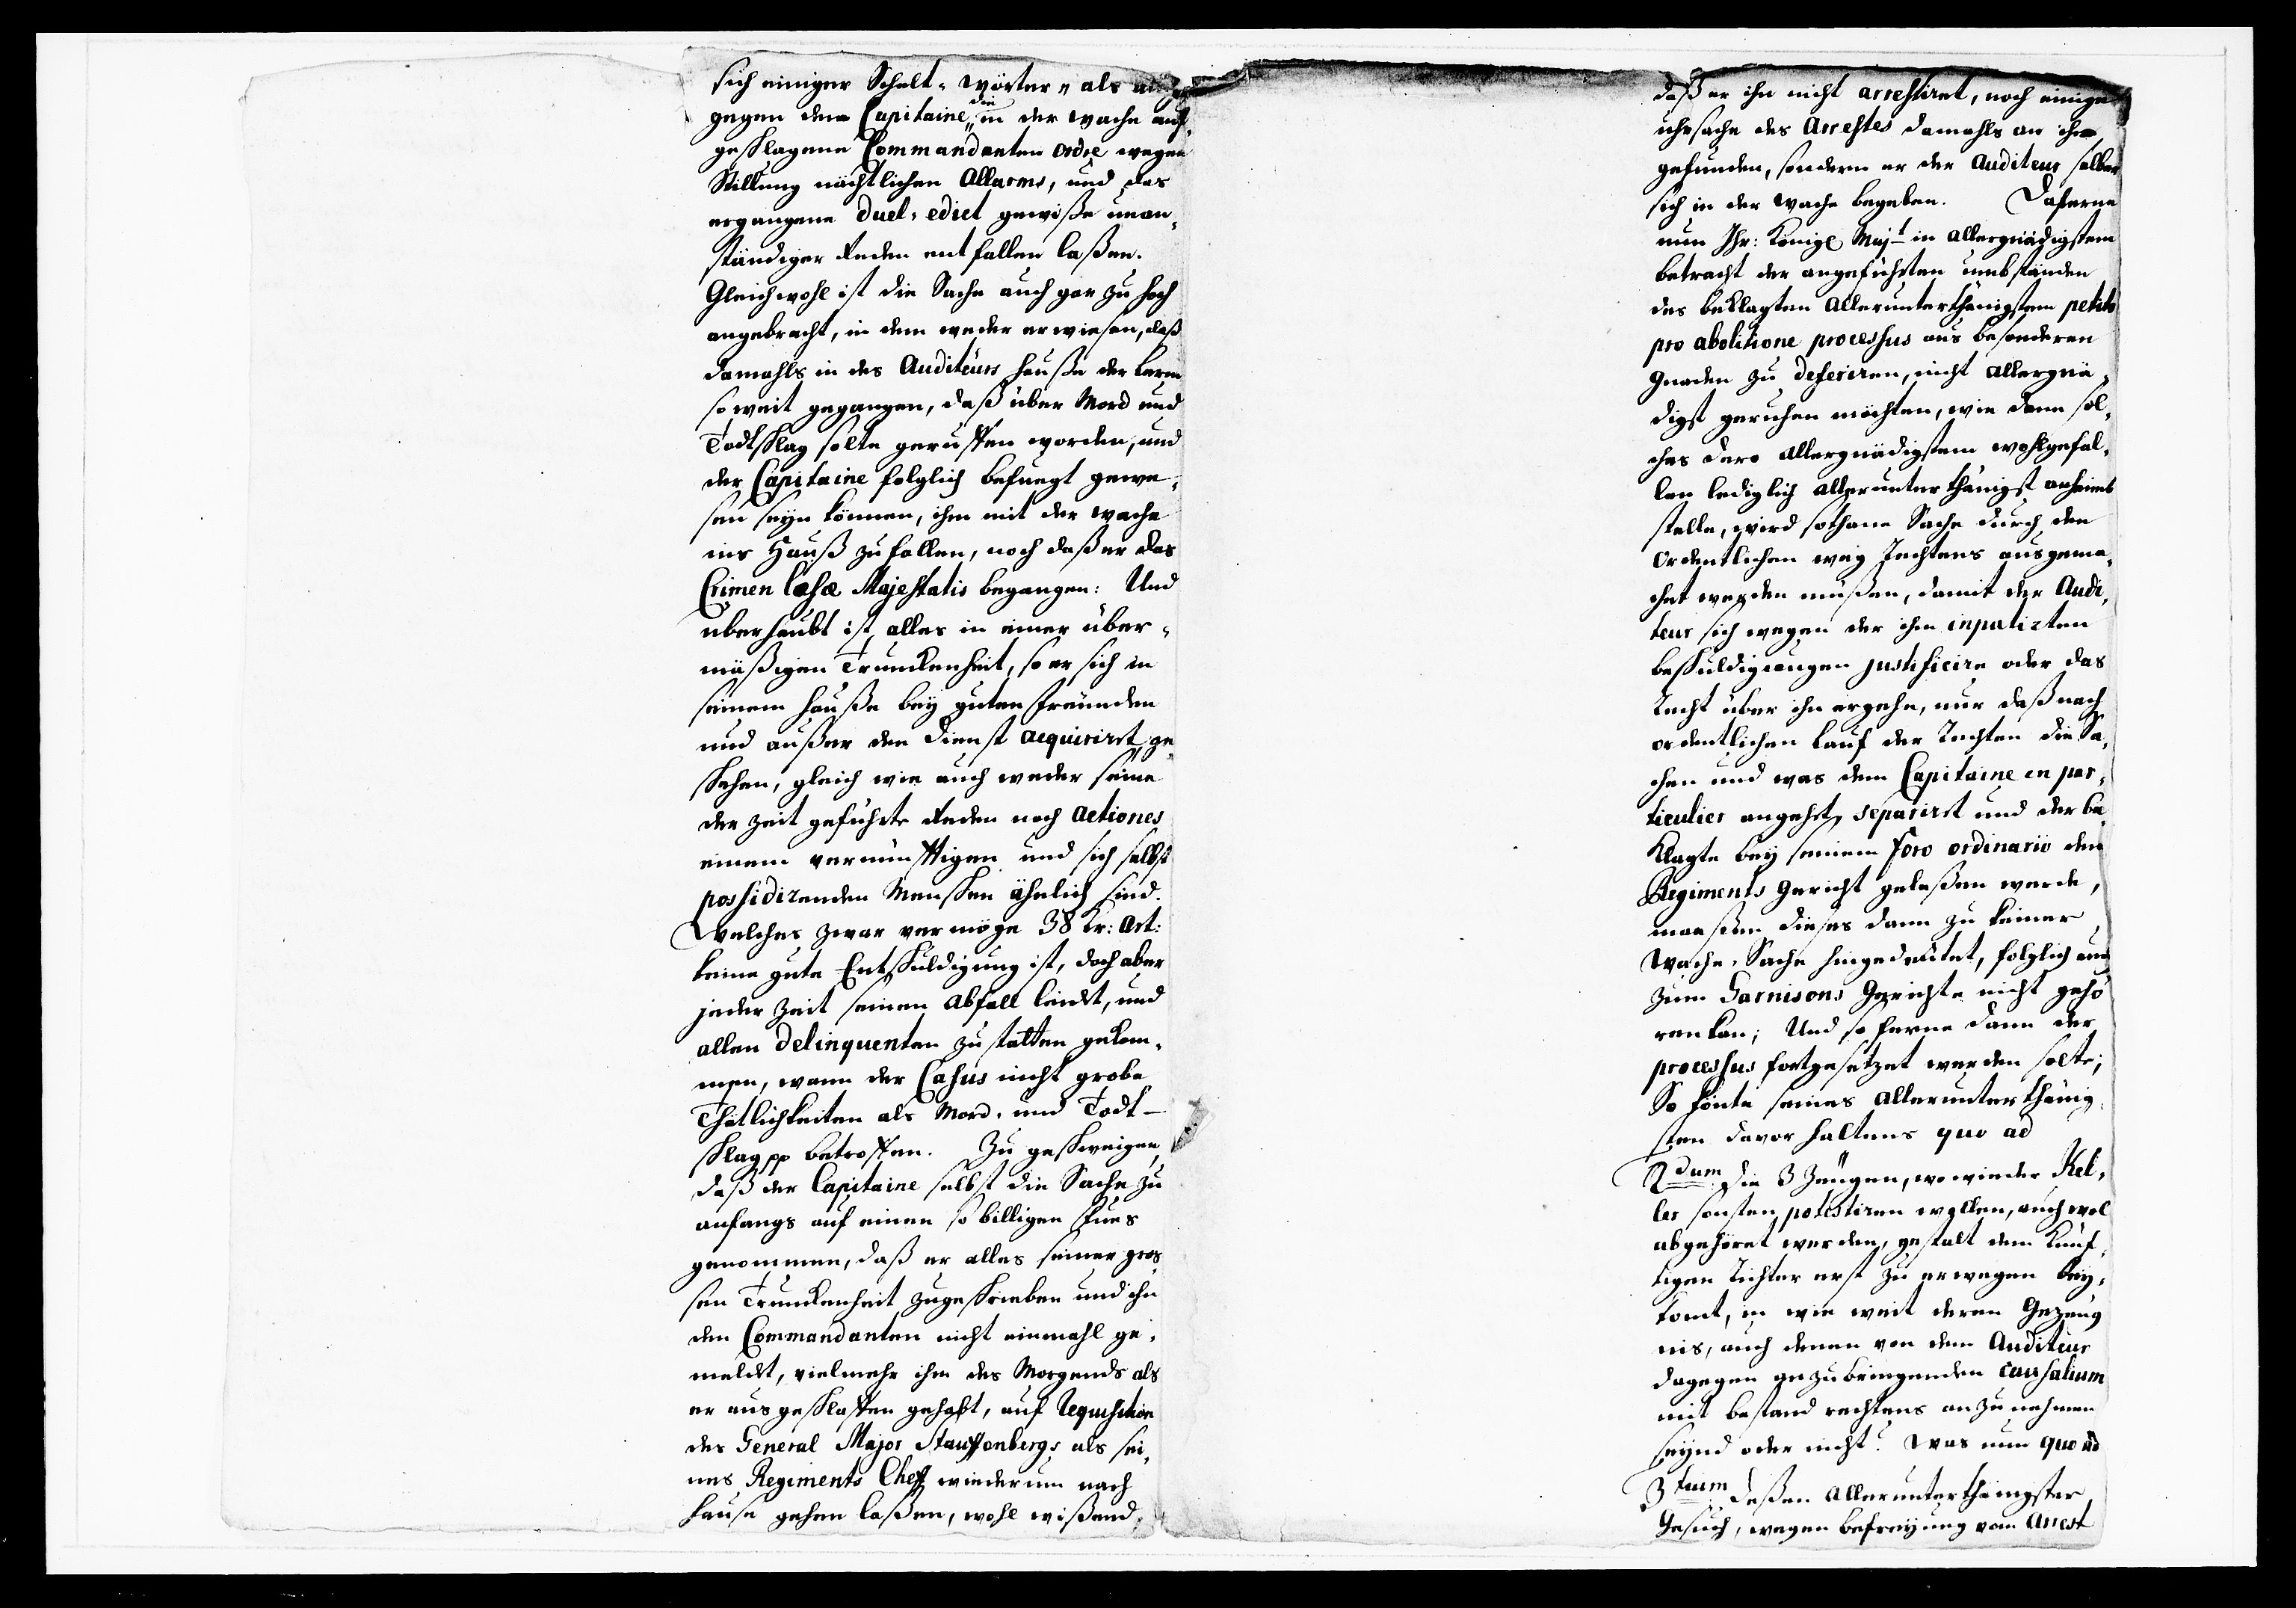 sich einiger Schelt-wörter, als
gegen den Capitaine, die in der wache auf-
geschlagene Commandanten ordre wegen
Stillung nächtlichen Allarms, und das
ergangene duel-edict gewiße unan-
ständiger Reden entfallen laßen.
Gleichwohl ist die Sache auch gar zu hoch
angebracht, in dem weder erwiesen, daß
damahls in des Auditeurs Hauße der lerm
so weit gegangen, daß über Mord und
Todtschlag solte geruffen worden, und
der Capitaine folglich befuegt gewe-
sen seyn können, ihm mit der wache
ins Hauß zu fallen, noch daß er das
Crimen læsæ Majestatis begangen: Und
überhaubt ist alles in einer über-
mäßigen Trunckenheit, so er sich in
seinem Hauße bey guten freunden
und außer den dienst acquirirt, ge-
schehen, gleich wie auch weder seine
der Zeit geführte Reden noch actiones
einem vernünfftigen und sich selbst
possidirenden Menschen ähnlich sind.
Welches zwar vermöge 38 Kr: Art:
keine gute Entschuldigung ist, doch aber
jeder Zeit seinen Abfall leidet, und
allen delinquenten zu statten gekom-
men, wann der Casus nicht grobe
Thätlichkeiten als Mord- und Todt-
schlag pp betroffen. Zu geschweigen,
daß der Capitaine selbst die Sache zu
anfangs auf einen so billigen Fues
genommen, daß er alles seiner gros-
sen Trunckenheit zugeschrieben und ihn
den Commandanten nicht einmahl ge-
meldet, vielmehr ihm des Morgends als
er ausgeschlaffen gehabt, auf Requisition
des General Major Stauffenbergs als sei-
nes Regiments Cheff wiederum nach
Hause gehen laßen, wohl wißend,
daß er ihn nicht arrestiret, noch einige
uhrsache des Arrestes damahls an ihm
gefunden, sondern er der Auditeur selber
sich in der wache begeben. Daferne
nun Ihr: Königl Majt in allergnädigstem
betracht der angeführten umbständen
des beklagten allerunterthänigstem petito
pro abolitione processus aus besonderen
Gnaden zu deferiren, nicht allergnä-
digst geruhen möchten, wie dann sol-
ches dero allergnädigstem wohlgefal-
len lediglich allerunterthänigst anheimb
stelle, wird sothane Sache durch den
ordentlichen weg Rechtens ausgema-
chet werden müßen, damit der Audi-
teur sich wegen der ihm inputirten
beschuldigungen justificire oder das
Recht über ihn ergehe, nur daß nach
ordentlichen lauf der Rechten die Sa-
chen und was dem Capitaine en par-
ticulier angehet, separirt und der be-
klagte bey seinem foro ordinario dem
Regiments Gericht gelaßen werde,
maaßen dieses dann zu keiner
wache-Sache hingedeutet, folglich auch
zum Garnisons Gerichte nicht gehö-
ren kan; Und so ferne dann der
processus fortgesetzet werden solte;
So könte seines allerunterthänig-
sten davorhaltens quo ad
2dum die 3 Zeugen, wowieder Kel-
ler sonsten potestiren wollen, auch wol
abgehöret werden, gestalt dem künf-
tigen Richter erst zu erwegen bey-
komt, in wie weit deren Gezeug-
nis, auch denen von dem Auditeur
dagegen zu bringenden causalium
mit bestand rechtens anzunehmen
seynd oder nicht? Was nun quo ad
3tium deßen allerunterthänigster
Gesuch, wegen befreyung vom Arrest